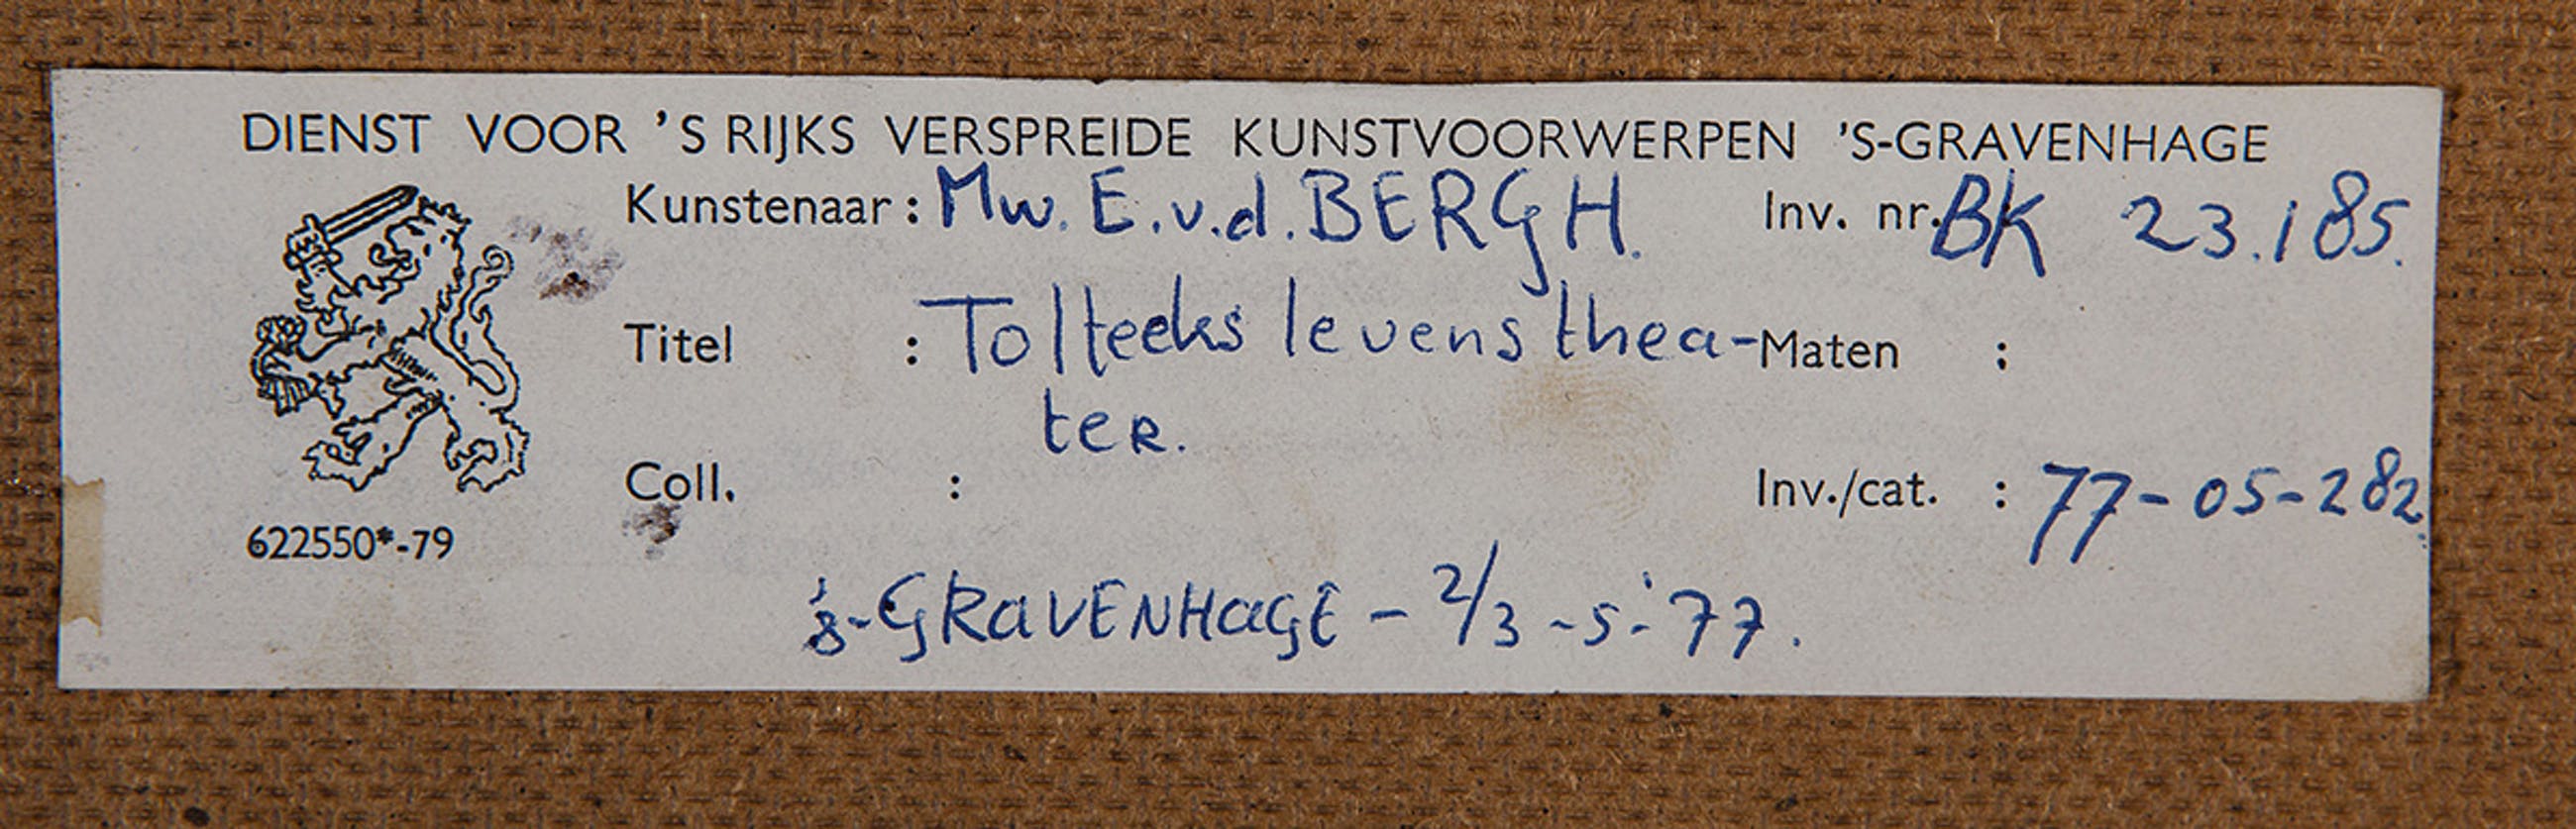 DIENST VOOR 'S RIJKS VERSPREIDE KUNSTVOORWERPEN 'S-GRAVENHAGE
Kunstenaar : Mw. E.v.d. BERGH. Inv. nr. BK 23.185.
Titel : Tolteeks levensthea- Maten :
ter.
Coll. : Inv./cat. : 77-05-282.
622550*-79
's-GRAVENHAGE - 2/3 -5-'77.